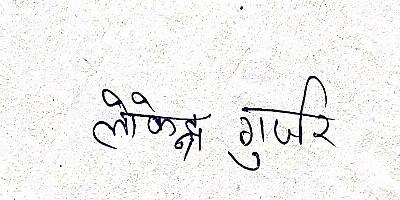 लोकेन्द्र गुर्जर